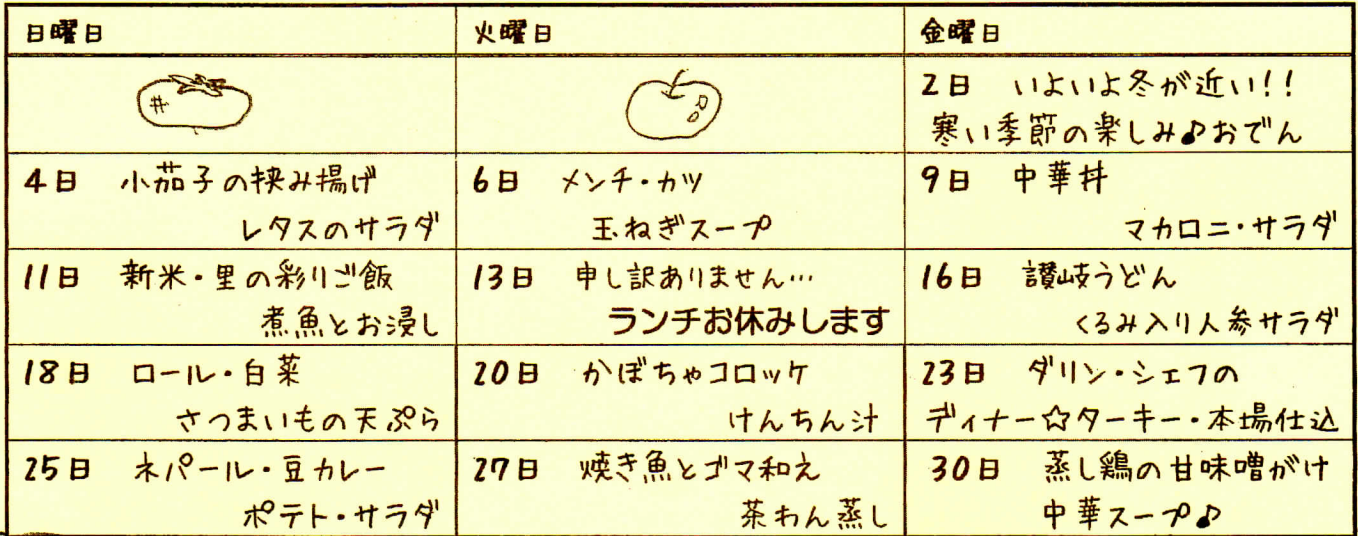 日曜日
火曜日
金曜日
2日 いよいよ冬が近い!!
寒い季節の楽しみ♪おでん
4日 小茄子の挟み揚げ
レタスのサラダ
6日 メンチ・カツ
玉ねぎスープ
9日 中華丼
マカロニ・サラダ
11日 新米・里の彩りご飯
煮魚とお浸し
13日 申し訳ありません…
ランチお休みします
16日 讃岐うどん
くるみ入り人参サラダ
18日 ロール・白菜
さつまいもの天ぷら
20日 かぼちゃコロッケ
けんちん汁
23日 ダリン・シェフの
ディナー☆ターキー・本場仕込
25日 ネパール・豆カレー
ポテト・サラダ
27日 焼き魚とゴマ和え
茶わん蒸し
30日 蒸し鶏の甘味噌がけ
中華スープ♪